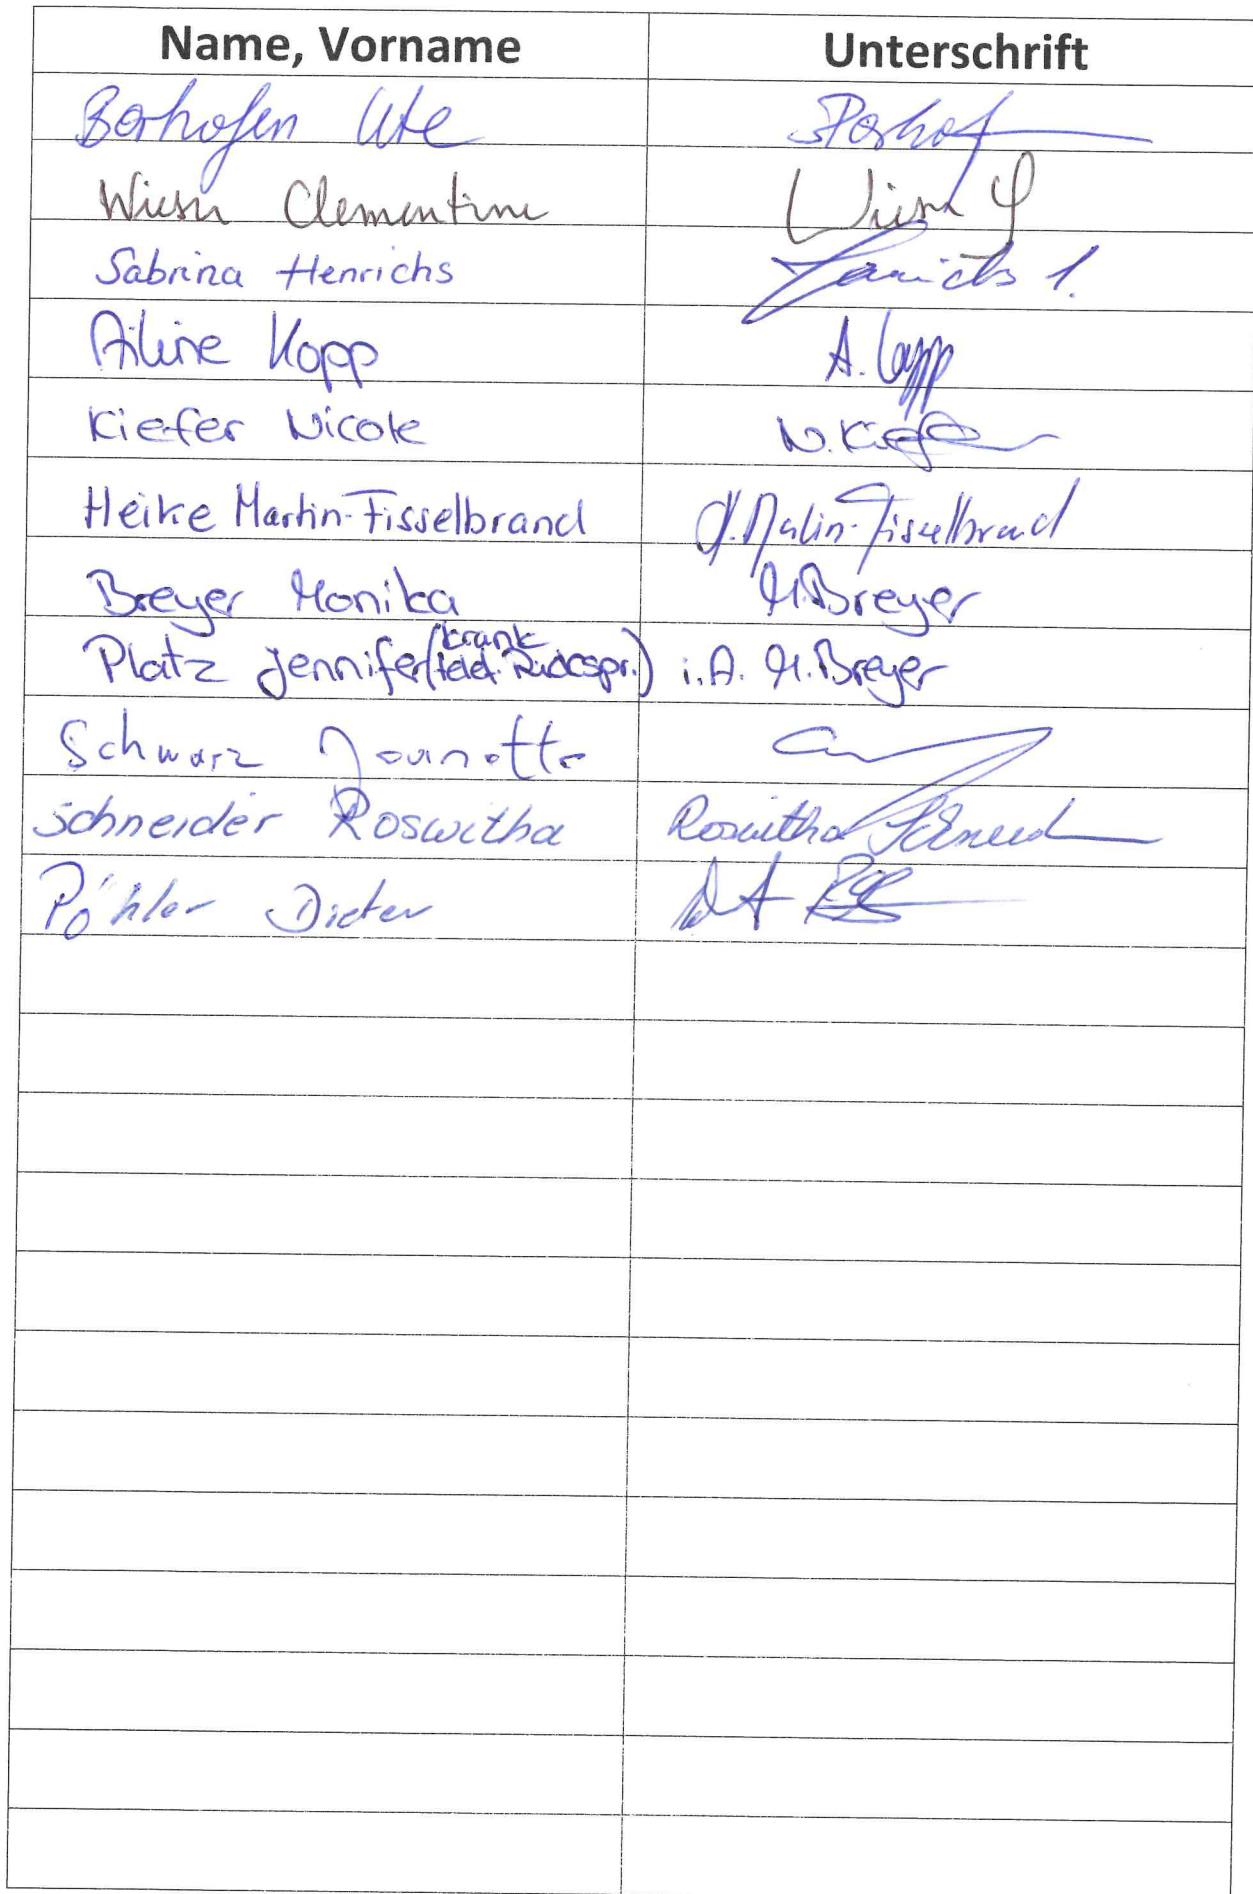 Name, Vorname Unterschrift
Borhofen Ute
Wiesen Clementine
Sabrina Henrichs
Aline Kopp A. Kopp
Kiefer Nicole N. Kiefer
Heike Martin-Fisselbrand H. Martin-Fisselbrand
Breyer Monika M. Breyer
Platz Jennifer (krank telef. Rückspr.) i.A. M. Breyer
Schwarz
Schneider Roswitha Roswitha Schneid
Pöhler Dieter